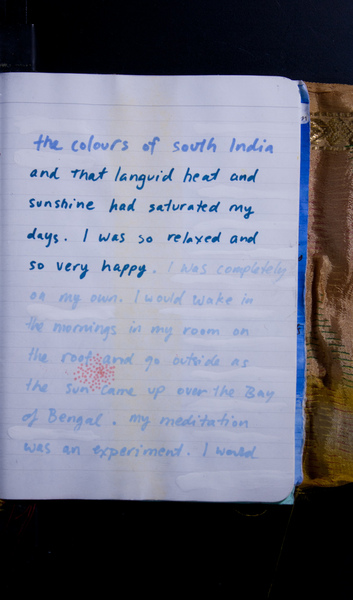 the colours of south India
and that languid heat and
sunshine had saturated my
days. I was so relaxed and
so very happy. I was completely
on my own. I would wake in
the mornings in my room on
the roof and go outside as
the sun came up over the Bay
of Bengal. my meditation
was an experiment. I would